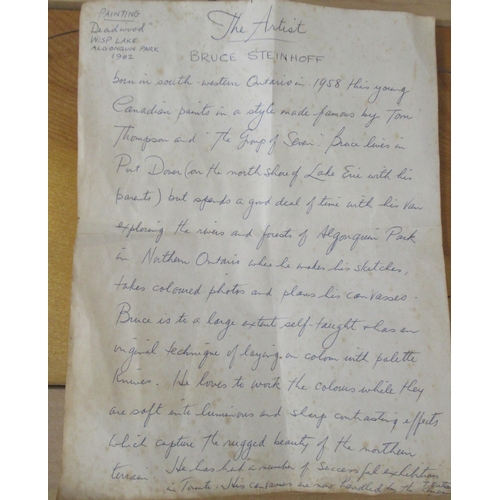 PAINTING
Deadwood
WISP LAKE
ALGONQUIN PARK
1982
The Artist
BRUCE STEINHOFF
born in south-western Ontario in 1958 this young
Canadian paints in a style made famous by Tom
Thompson and "The Group of Seven". Bruce lives in
Port Dover (on the north shore of Lake Erie with his
parents) but spends a good deal of time with his van
exploring the rivers and forests of Algonquin Park
in Northern Ontario where he makes his sketches,
takes coloured photos and plans his canvasses.
Bruce is to a large extent self-taught & has an
original technique of laying-on colour with palette
knives. He loves to work the colours while they
are soft into luminous and sharp contrasting effects
which capture the rugged beauty of the northern
terrain. He has had a number of successful exhibitions
in Toronto. His canvasses are now handled by the